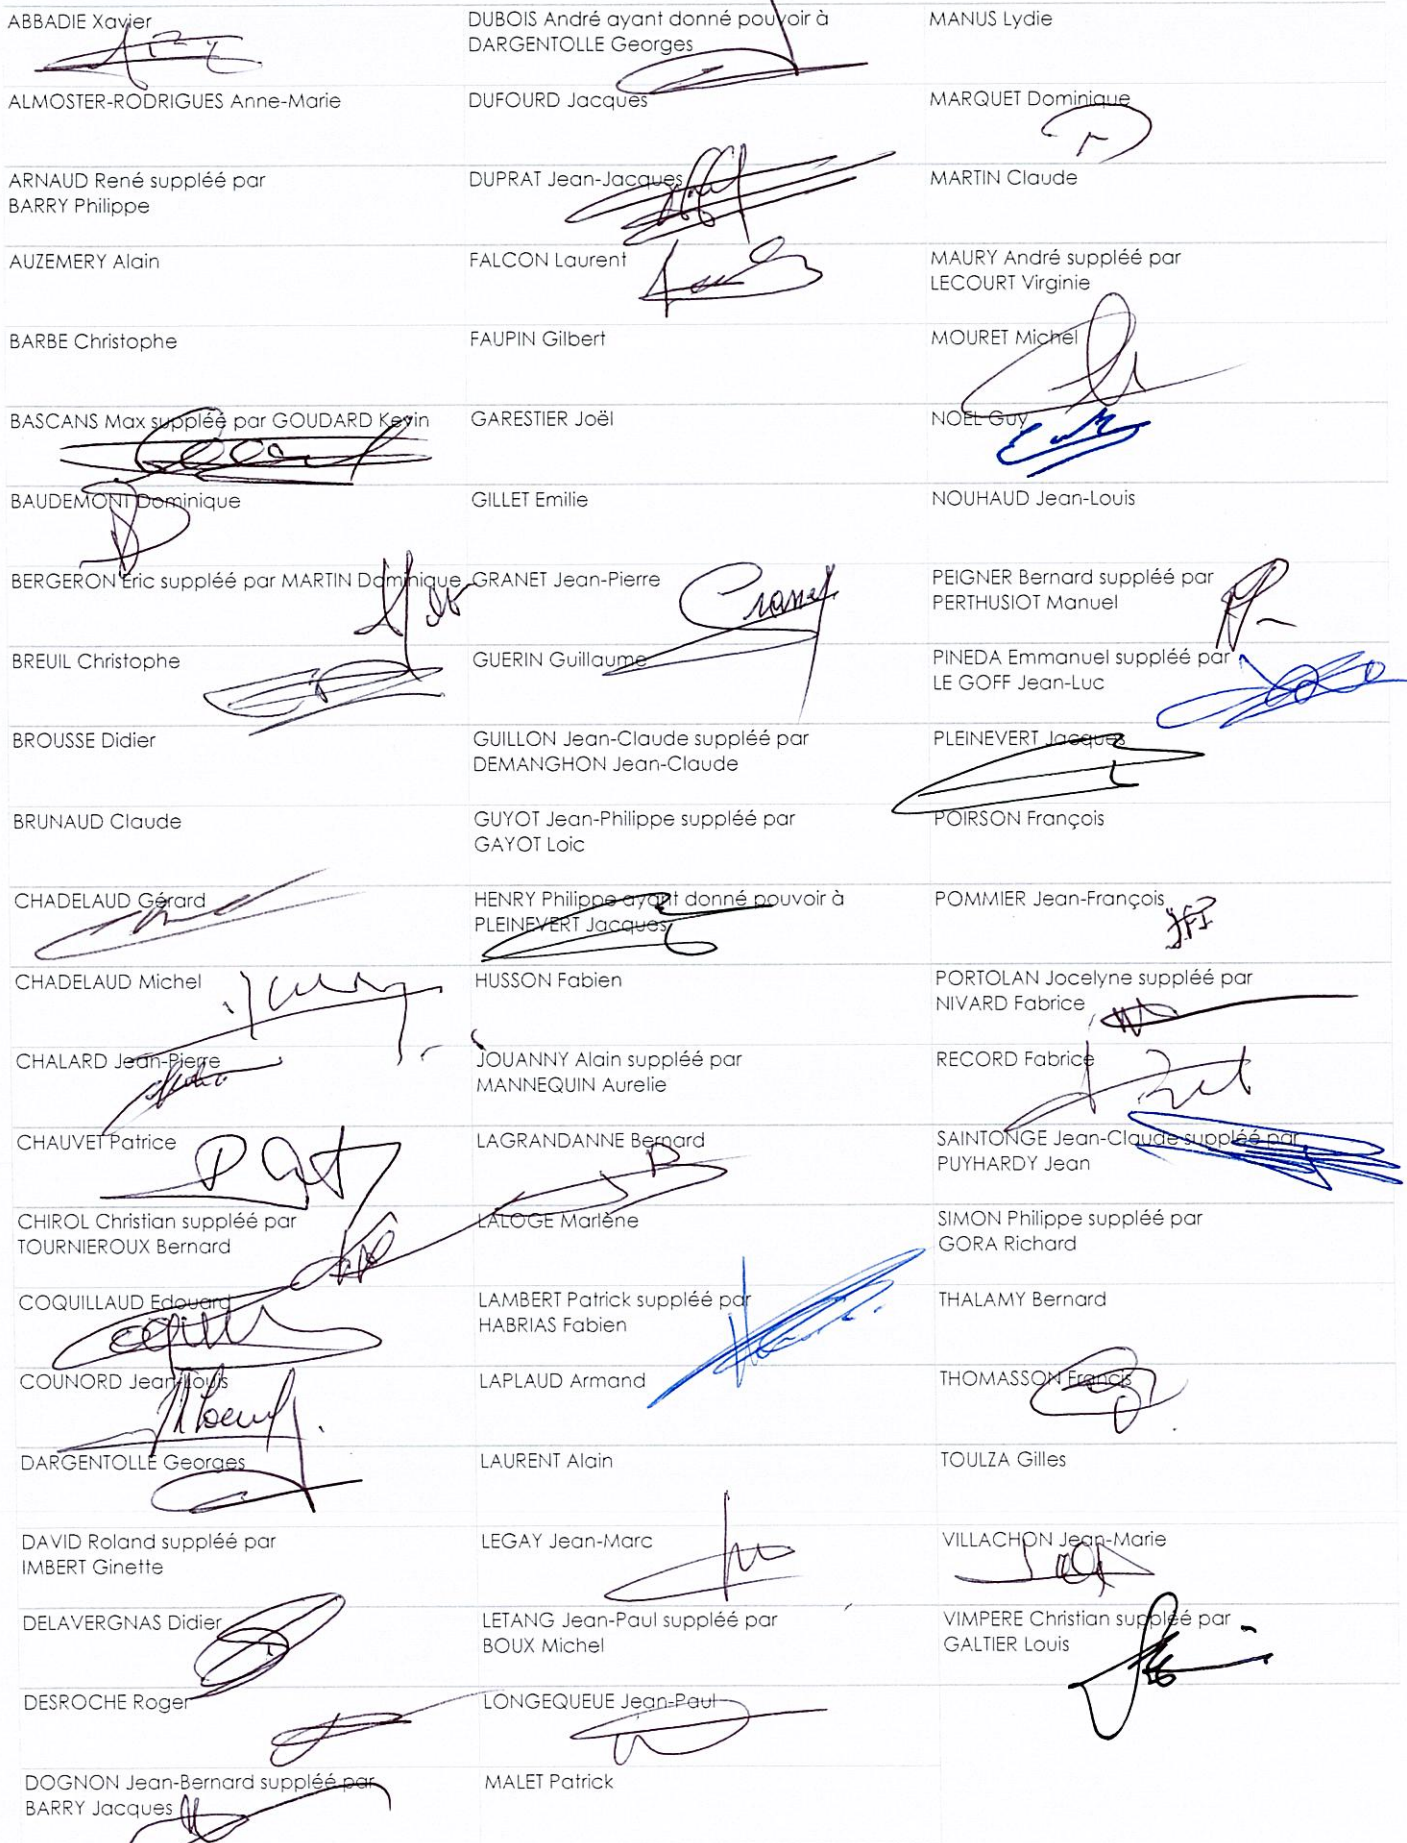 ABBADIE Xavier
ALMOSTER-RODRIGUES Anne-Marie
ARNAUD René suppléé par
BARRY Philippe
AUZEMERY Alain
BARBE Christophe
BASCANS Max suppléé par GOUDARD Kevin
BAUDEMONT Dominique
BERGERON Eric suppléé par MARTIN Dominique
BREUIL Christophe
BROUSSE Didier
BRUNAUD Claude
CHADELAUD Gérard
CHADELAUD Michel
CHALARD Jean-Pierre
CHAUVET Patrice
CHIROL Christian suppléé par
TOURNIEROUX Bernard
COQUILLAUD Edouard
COUNORD Jean-Louis
DARGENTOLLE Georges
DAVID Roland suppléé par
IMBERT Ginette
DELAVERGNAS Didier
DESROCHE Roger
DOGNON Jean-Bernard suppléé par
BARRY Jacques
DUBOIS André ayant donné pouvoir à
DARGENTOLLE Georges
DUFOURD Jacques
DUPRAT Jean-Jacques
FALCON Laurent
FAUPIN Gilbert
GARESTIER Joël
GILLET Emilie
GRANET Jean-Pierre
Granet
GUERIN Guillaume
GUILLON Jean-Claude suppléé par
DEMANGHON Jean-Claude
GUYOT Jean-Philippe suppléé par
GAYOT Loic
HENRY Philippe ayant donné pouvoir à
PLEINEVERT Jacques
HUSSON Fabien
JOUANNY Alain suppléé par
MANNEQUIN Aurelie
LAGRANDANNE Bernard
LALOGE Marlène
LAMBERT Patrick suppléé par
HABRIAS Fabien
LAPLAUD Armand
LAURENT Alain
LEGAY Jean-Marc
LETANG Jean-Paul suppléé par
BOUX Michel
LONGEQUEUE Jean-Paul
MALET Patrick
MANUS Lydie
MARQUET Dominique
MARTIN Claude
MAURY André suppléé par
LECOURT Virginie
MOURET Michel
NOËL Guy
NOUHAUD Jean-Louis
PEIGNER Bernard suppléé par
PERTHUSIOT Manuel
PINEDA Emmanuel suppléé par
LE GOFF Jean-Luc
PLEINEVERT Jacques
POIRSON François
POMMIER Jean-François
JFP
PORTOLAN Jocelyne suppléé par
NIVARD Fabrice
RECORD Fabrice
SAINTONGE Jean-Claude suppléé par
PUYHARDY Jean
SIMON Philippe suppléé par
GORA Richard
THALAMY Bernard
THOMASSON Francis
TOULZA Gilles
VILLACHON Jean-Marie
VIMPERE Christian suppléé par
GALTIER Louis